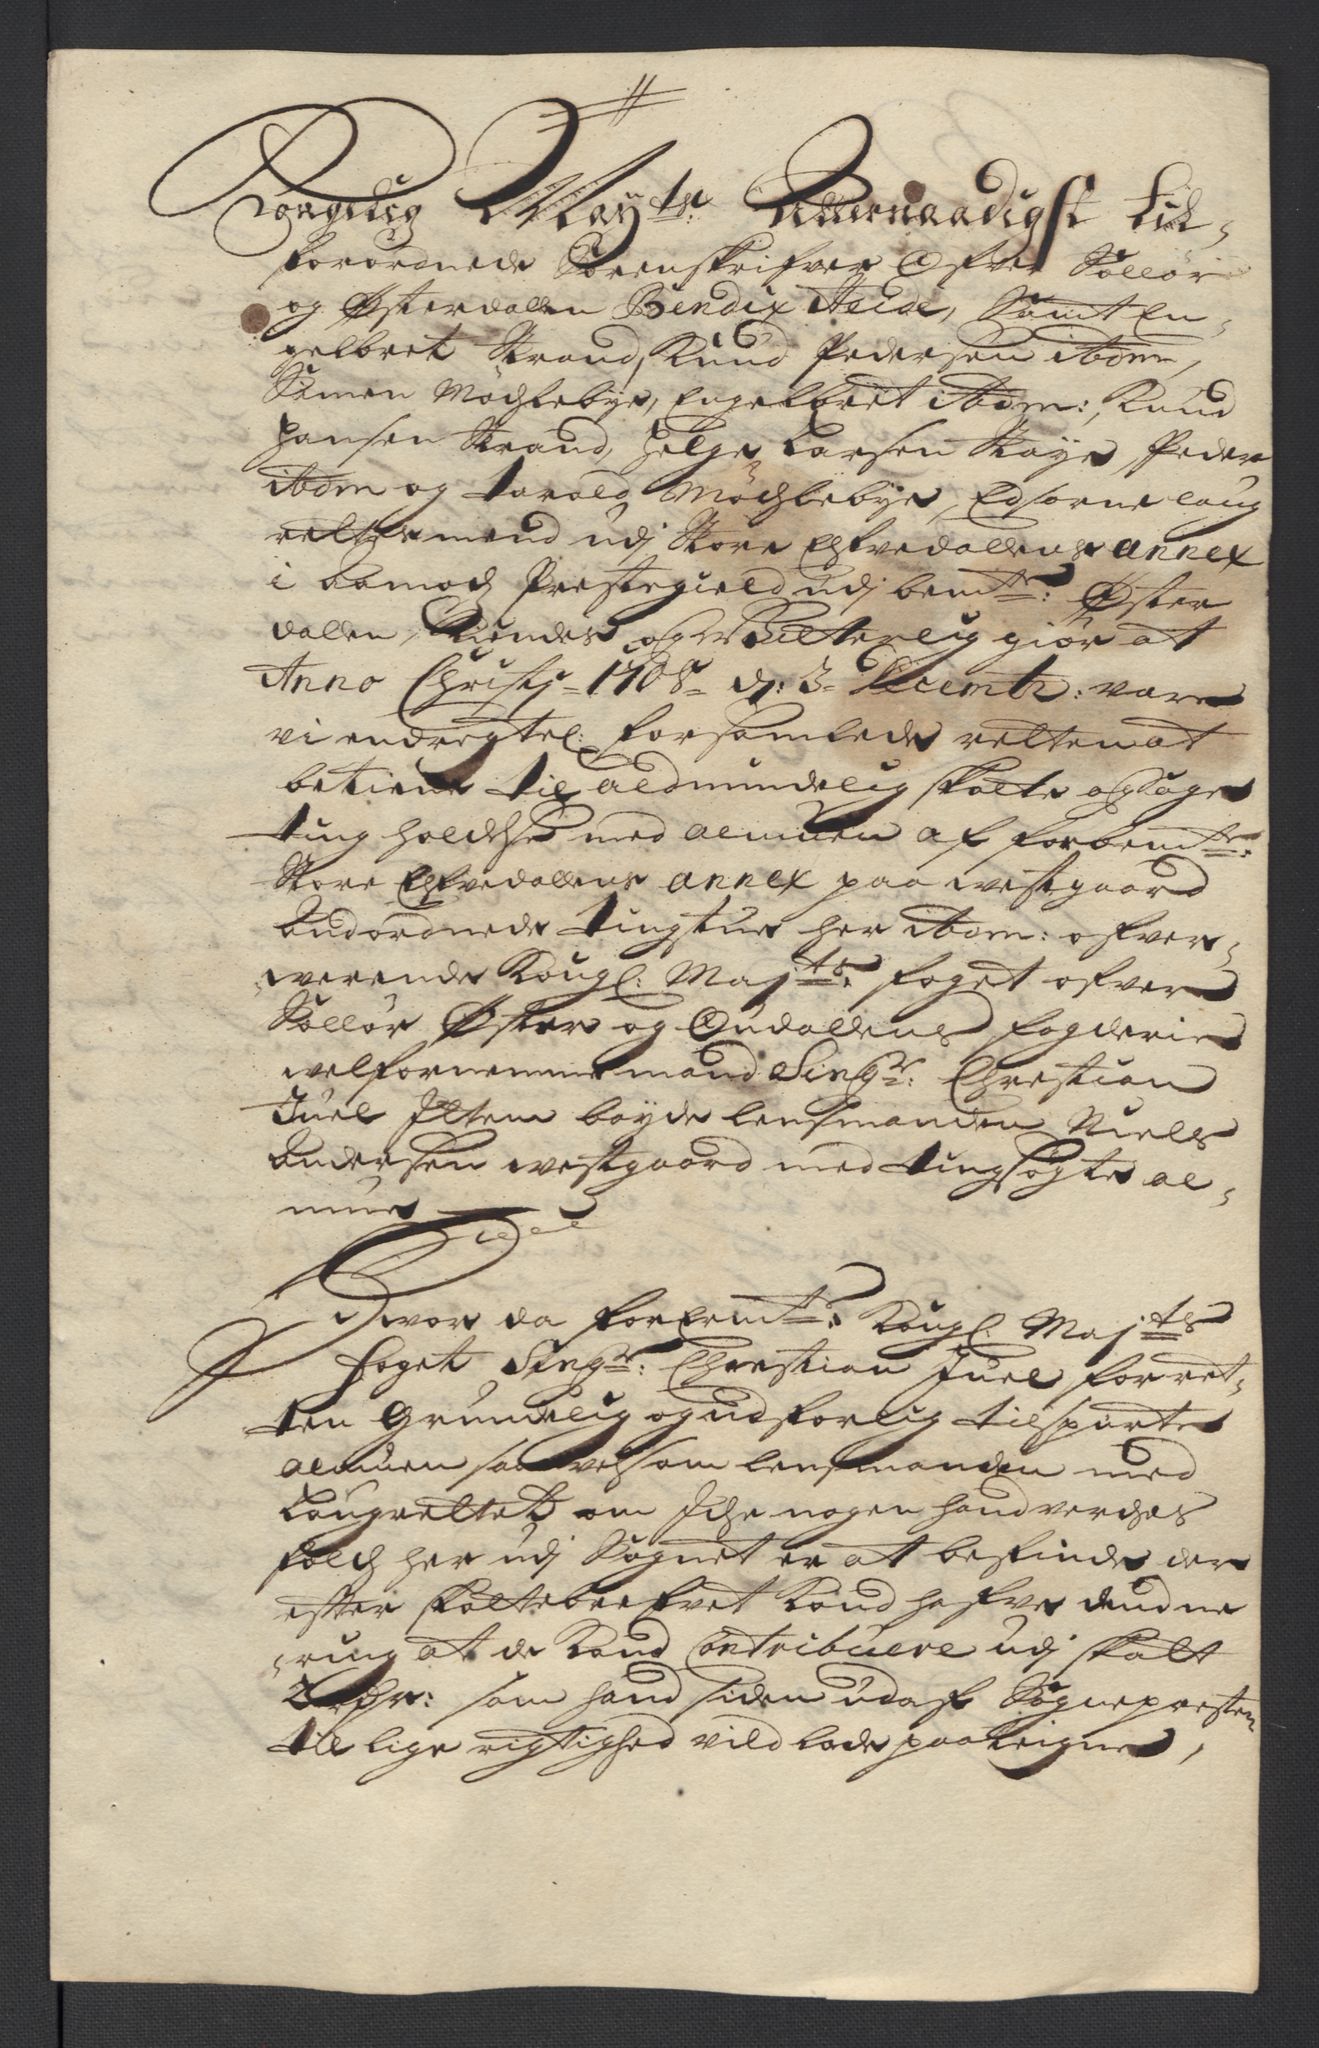 Kongelig Maÿts: Allernaadigst til-
forordnede Sorenskrifver Ofver Sollør
og Østerdallen Bendix Neide, Samt En-
gelbret Strand, Knud Pedersen ibdm,
Simen Mochlebye, Engelbret ibdm:, Knud
Hansen Strand, Helge Larsen Køye, Peder
ibdm og Tarald Mochlebye, Edsorne laug
rettismend udj Store Elfvedallens annex
i Aamod Prestegield udj bemte: Øster
dallen, Kiendes og Witterlig giør at
Anno Christj 1708 d: 3 Decembr: vare
vi endregtel: forsamlede retten at
betiene til aldmindelig skatte og Sage
ting holdelse med almuen af forbemte:
Store Elfvedallens annex paa westgaard
Andordnede tingstue her ibdm: ofver-
werende Kongl: Majts: foget ofver
Sollør Øster og Oudallens fogderie
welfornemme mand Singr: Christian
Juel Jttem bøyde lensmanden Niels
Andersen westgaard med tingsøgte al-
mue
Hvor da forbemte: Kongl: Majts
foget Singr: Christian Juel for ret-
ten Grundelig og udførlig tilspurte
almuen saavelsom lensmanden med
Laugrettet om Jche nogen handverches
folch her udj Sognet er at befinde der
efter skattebrefvet Kand hafve dend ne
ring at de Kand Contribuere udj skatt
2 Rdr: som hand siden udaf Sognepresten
till lige rigtighed vild lade paateigne,